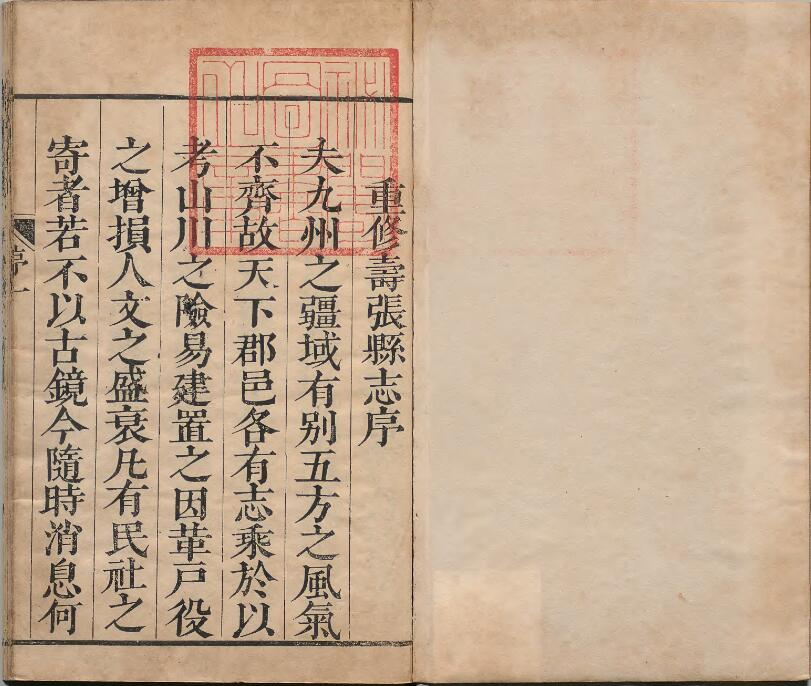 重修壽張縣志序
夫九州之疆域有別五方之風氣
不齊故天下郡邑各有志乘於以
考山川之險易建置之因革戶役
之增損人文之盛衰凡有民社之
寄者若不以古鏡今隨時消息何
序一